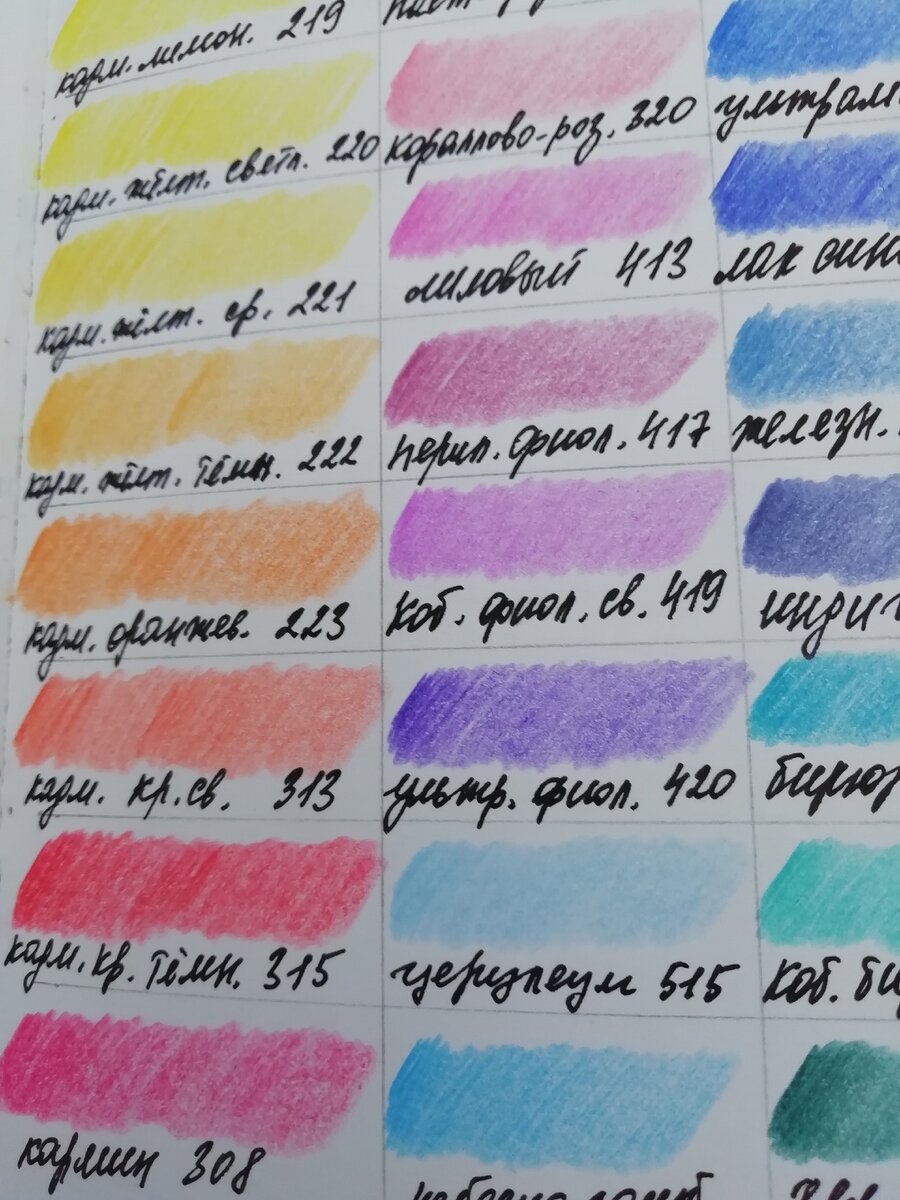 кадм. лимон. 219
кадм. жёлт. светл. 220
кадм. жёлт. ср. 221
кадм. жёлт. тёмн. 222
кадм. оранжев. 223
кадм. кр. св. 313
кадм. кр. тёмн. 315
кармин 308
кораллово-роз. 320
лиловый 413
перил. фиол. 417
коб. фиол. св. 419
ультр. фиол. 420
церулеум 515
ультрам
лак син
железн.
индиг
бирюз
коб. би